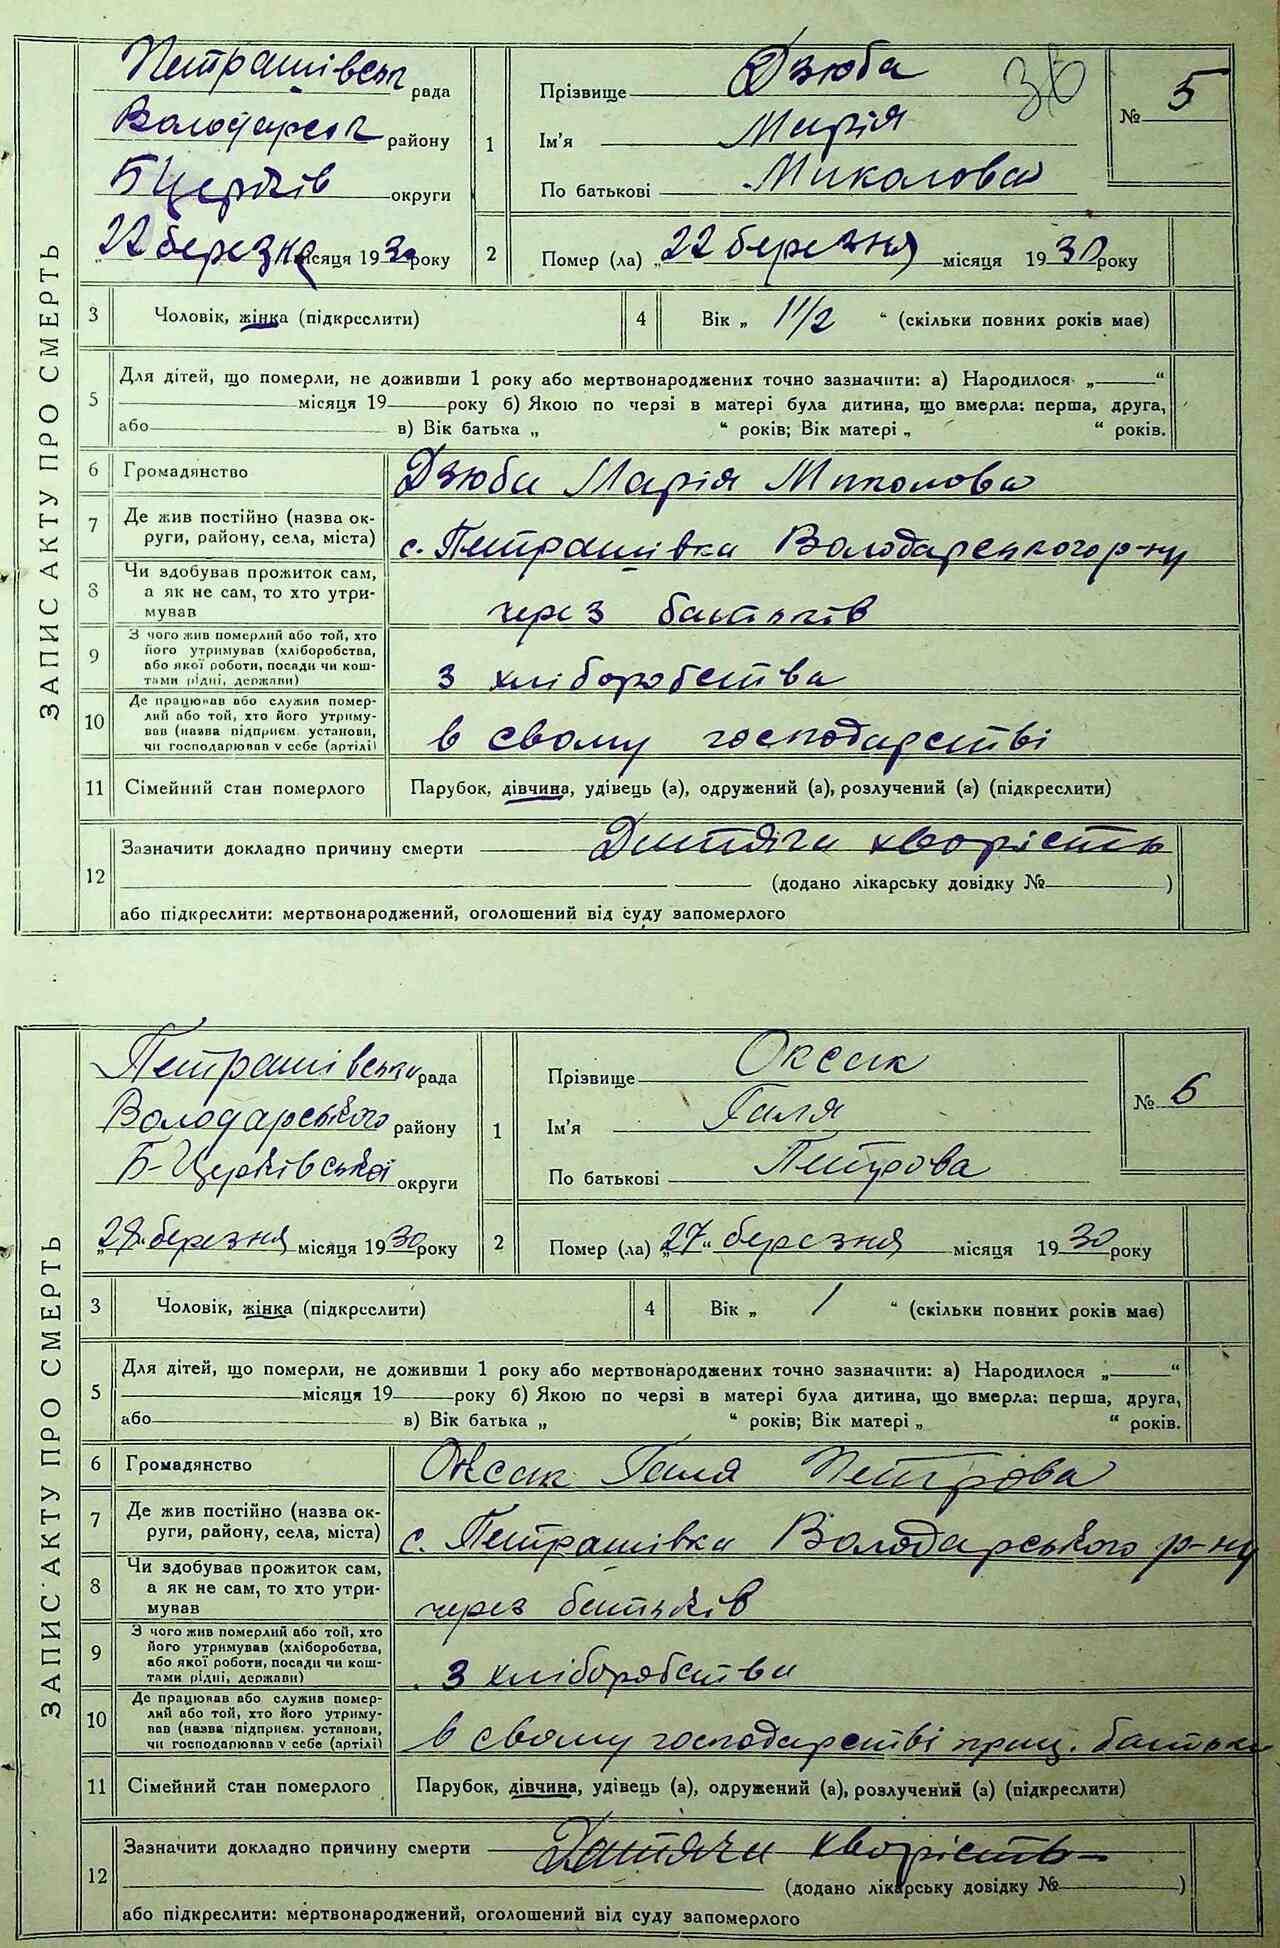 ЗАПИС АКТУ ПРО СМЕРТЬ
Петрашівськ рада
Володарськ району
Б Церків округи
„22 березня місяця 1930 року
1
Прізвище Дзюба
Ім'я Марія
По батькові Миколова
36
№ 5
2 Помер (ла) „22 березня місяця 1930 року
3 Чоловік, жінка (підкреслити) 4 Вік „ 1 1/2 “ (скільки повних років має)
5 Для дітей, що померли, не доживши 1 року або мертвонароджених точно зазначити: а) Народилося „ “
місяця 19 року б) Якою по черзі в матері була дитина, що вмерла: перша, друга,
або в) Вік батька „ “ років; Вік матері „ “ років.
6 Громадянство Дзюба Марія Миколова
7 Де жив постійно (назва ок-
руги, району, села, міста) с. Петрашівка Володарського р-ну
8 Чи здобував прожиток сам,
а як не сам, то хто утри-
мував через батьків
9 З чого жив померлий або той, хто
його утримував (хліборобства,
або якої роботи, посади чи кош-
тами рідні, держави) з хліборобства
10 Де працював або служив помер-
лий або той, хто його утриму-
вав (назва підприєм. установи,
чи господарював у себе (артілі) в свому господарстві
11 Сімейний стан померлого Парубок, дівчина, удівець (а), одружений (а), розлучений (а) (підкреслити)
12 Зазначити докладно причину смерти Дитяча хворість
(додано лікарську довідку № )
або підкреслити: мертвонароджений, оголошений від суду запомерлого
ЗАПИС АКТУ ПРО СМЕРТЬ
Петрашівська рада
Володарського району
Б-Церківської округи
„28“ березня місяця 1930 року
1
Прізвище Оксак
Ім'я Галя
По батькові Петрова
№ 6
2 Помер (ла) „27“ березня місяця 1930 року
3 Чоловік, жінка (підкреслити) 4 Вік „ 1 “ (скільки повних років має)
5 Для дітей, що померли, не доживши 1 року або мертвонароджених точно зазначити: а) Народилося „ “
місяця 19 року б) Якою по черзі в матері була дитина, що вмерла: перша, друга,
або в) Вік батька „ “ років; Вік матері „ “ років.
6 Громадянство Оксак Галя Петрова
7 Де жив постійно (назва ок-
руги, району, села, міста) с. Петрашівка Володарського р-ну
8 Чи здобував прожиток сам,
а як не сам, то хто утри-
мував через батьків
9 З чого жив померлий або той, хто
його утримував (хліборобства,
або якої роботи, посади чи кош-
тами рідні, держави) з хліборобства
10 Де працював або служив помер-
лий або той, хто його утриму-
вав (назва підприєм. установи,
чи господарював у себе (артілі) в свому господарстві прац. батьки
11 Сімейний стан померлого Парубок, дівчина, удівець (а), одружений (а), розлучений (а) (підкреслити)
12 Зазначити докладно причину смерти Дитяча хворість
(додано лікарську довідку № )
або підкреслити: мертвонароджений, оголошений від суду запомерлого